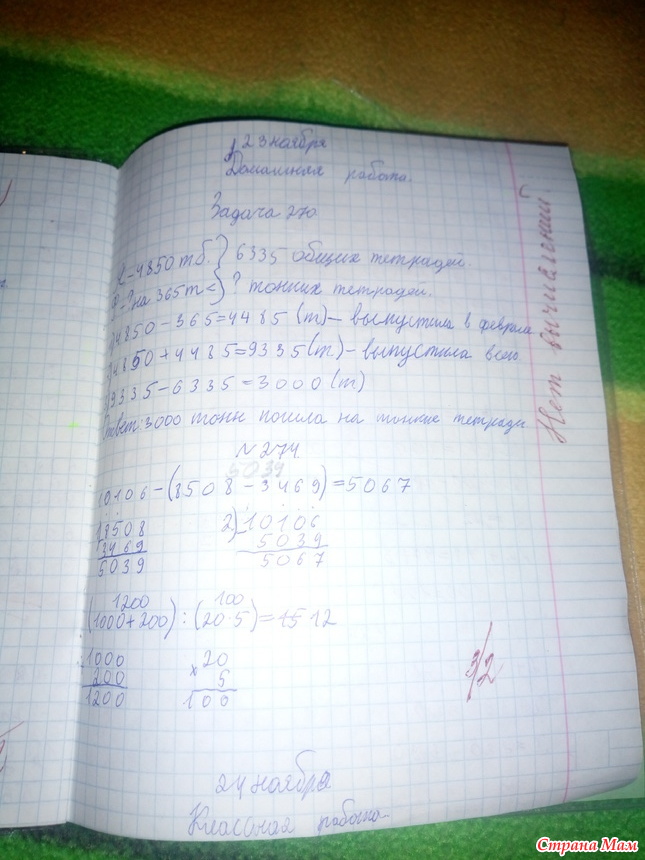 23 ноября
Домашняя работа.
Задача 270
Я – 4850 т б. } 6335 общих тетрадей.
Ф – ? на 365 т < } ? тонких тетрадей.
4850 – 365 = 4485 (т) – выпустила в феврале
4850 + 4485 = 9335 (т) – выпустила всего
9335 – 6335 = 3000 (т)
Ответ: 3000 тонн пошла на тонкие тетради.
Нет вычислений!
№ 274
5039
10106 – (8508 – 3469) = 5067
8508
3469
5039
2) 10106
5039
5067
1200 100
(1000 + 200) : (20 · 5) = 15 12
1000
200
1200
20
× 5
100
3/2
24 ноября
Классная работа.
Страна Мам